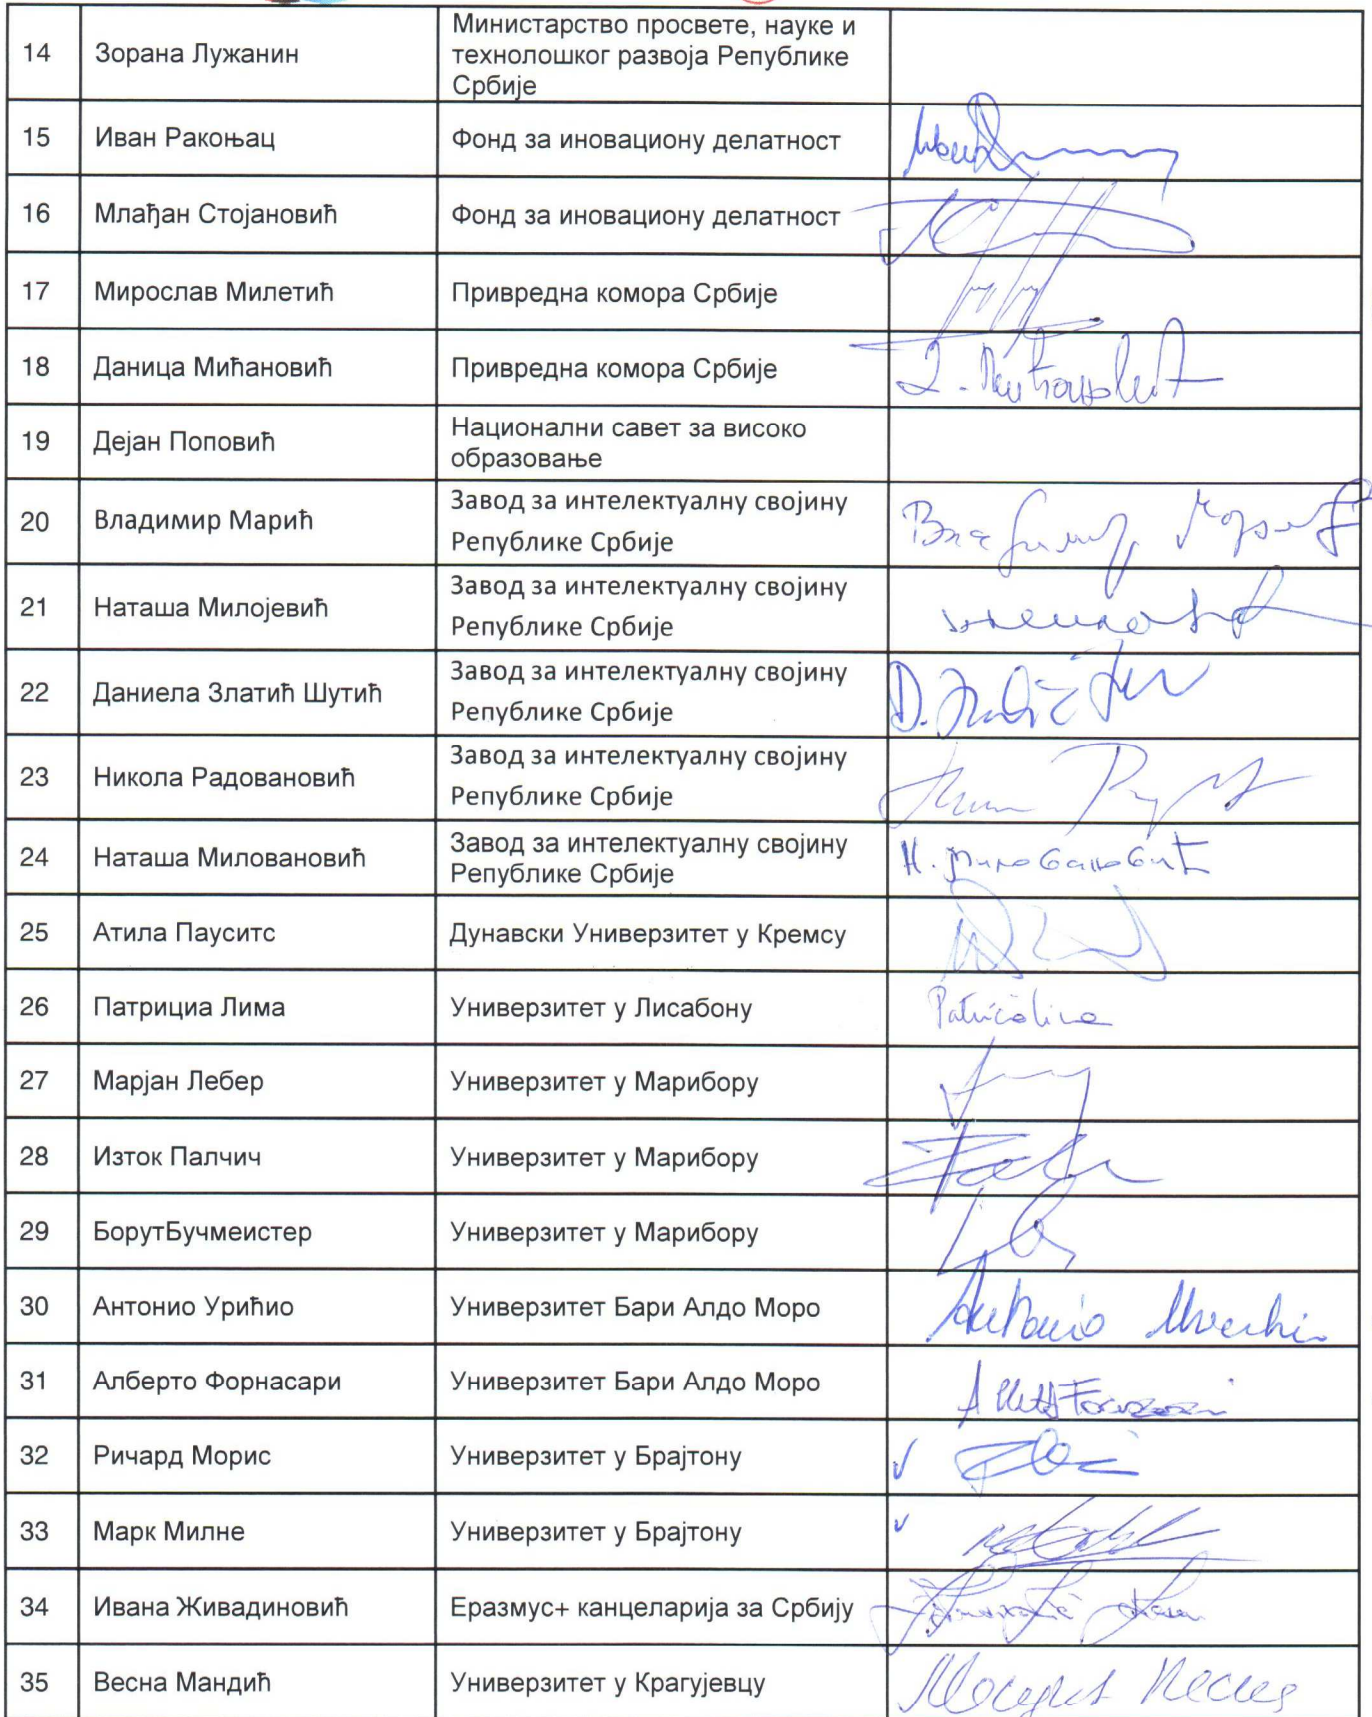 14 Зорана Лужанин Министарство просвете, науке и
технолошког развоја Републике
Србије
15 Иван Ракоњац Фонд за иновациону делатност
16 Млађан Стојановић Фонд за иновациону делатност
17 Мирослав Милетић Привредна комора Србије
18 Даница Мићановић Привредна комора Србије
19 Дејан Поповић Национални савет за високо
образовање
20 Владимир Марић Завод за интелектуалну својину
Републике Србије
21 Наташа Милојевић Завод за интелектуалну својину
Републике Србије
22 Даниела Златић Шутић Завод за интелектуалну својину
Републике Србије
23 Никола Радовановић Завод за интелектуалну својину
Републике Србије
24 Наташа Миловановић Завод за интелектуалну својину Н. Миловановић
Републике Србије
25 Атила Пауситс Дунавски Универзитет у Кремсу
26 Патрициа Лима Универзитет у Лисабону Patrícia Lima
27 Марјан Лебер Универзитет у Марибору
28 Изток Палчич Универзитет у Марибору
29 БорутБучмеистер Универзитет у Марибору
30 Антонио Урићио Универзитет Бари Алдо Моро Antonio
31 Алберто Форнасари Универзитет Бари Алдо Моро
32 Ричард Морис Универзитет у Брајтону
33 Марк Милне Универзитет у Брајтону
34 Ивана Живадиновић Еразмус+ канцеларија за Србију
35 Весна Мандић Универзитет у Крагујевцу